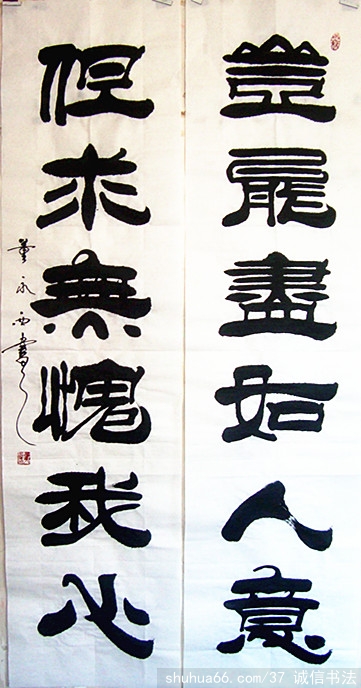 豈能盡如人意
但求無愧我心
董永西書
shuhua66.com/37 诚信书法